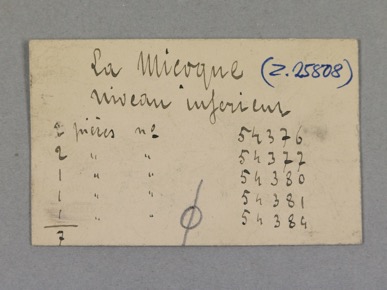 La Micoque (Z.25808)
niveau inferieur
2 pièces no 54376
2 " " 54377
1 " " 54380
1 " " 54381
1 " " 54384
7
ϕ